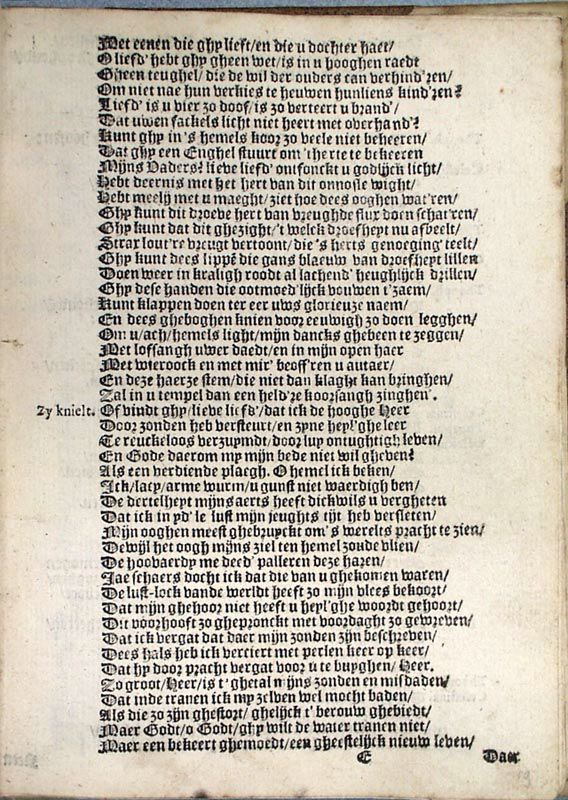 Met eenen die ghy lieft/en die u dochter haet/
O liefd' hebt ghy gheen wet/is in u hooghen raedt
Gheen teughel/ die de wil der ouders can verhind'ren/
Om niet nae hun verkies te heuwen hunliens kind'ren?
Liefd' is u vier zo doof/ is zo verteert u brand'/
Dat uwen fackels licht niet heert met overhand'?
Kunt ghy in's hemels koor zo veele niet beheeren/
Dat ghy een Enghel stuurt om 't herte te bekeeren
Mijns Vaders? lieve liefd' ontfonckt u godlijck licht/
Hebt deernis met het hert van dit onnosle wight/
Hebt meelij met u maeght/ ziet hoe dees ooghen wat'ren/
Ghy kunt dit droeve hert van vreughde flux doen schat'ren/
Ghy kunt dat dit ghezight/'t welck droefheyt nu afbeelt/
Strax lout're vreugt vertoont/ die 's herts genoeging teelt/
Ghy kunt dees lippē die gans blaeuw van droefheyt lillen
Doen weer in kraligh roodt al lachend' heughlijck drillen/
Ghy dese handen die ootmoed'lijck vouwen t'zaem/
Kunt klappen doen ter eer uws glorieuze naem/
En dees gheboghen knien voor eeuwigh zo doen legghen/
Om u/ach/ hemels light/mijn dancks ghebeen te zeggen/
Met loffangh uwer daedt/ en in mijn open haer
Met wieroock en met mir' beoff'ren u autaer/
En deze haerze stem/die niet dan klaght kan bringhen/
Zal in u tempel dan een held're koorsangh zinghen.
Zy knielt. Of vindt ghy/lieve liefd'/dat ick de hooghe Heer
Door zonden heb versteurt/ en zyne heyl'ghe leer
Te reuckeloos verzuymdt/door luy ontughtigh leven/
En Gode daerom my mijn bede niet wil gheven?
Als een verdiende plaegh. O hemel ick beken/
Ick/lacy/arme wurm/u gunst niet waerdigh ben/
De dertelheyt mijns aerts heeft dickwils u vergheten
Dat ick in yd'le lust mijn jeughts tijt heb versleten/
Mijn ooghen meest ghebruyckt om's werelts pracht te zien/
Dewijl het oogh mijns ziel ten hemel zoude vlien/
De hoovaerdy me deed' palleren deze haren/
Jae schaers docht ick dat die van u ghekomen waren/
De lust-lock vande werldt heeft zo mijn vlees bekoort/
Dat mijn ghehoor niet heeft u heyl'ghe woordt gehoort/
Dit voorhooft zo ghepronckt met voordaght zo gewreven/
Dat ick vergat dat daer mijn zonden zijn beschreven/
Dees hals heb ick verciert met perlen keer op keer/
Dat hy door pracht vergat voor u te buyghen/ Heer.
Zo groot/Heer/is t'ghetal mijns zonden en misdaden/
Dat inde tranen ick my zelven wel mocht baden/
Als die zo zijn ghestort/ ghelijck t' berouw ghebiedt/
Maer Godt/o Godt/ ghy wilt de water tranen niet/
Maer een bekeert ghemoedt/een gheestelijck nieuw leven/
C Daer
19